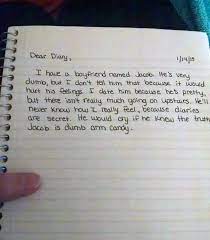 Dear Diary,
I have a boyfriend named Jacob. He's very
dumb, but I don't tell him that because it would
hurt his feelings. I date him because he's pretty,
but there isn't really much going on upstairs. He'll
never know how I really feel, because diaries
are secret. He would cry if he knew the truth
Jacob is dumb arm candy.